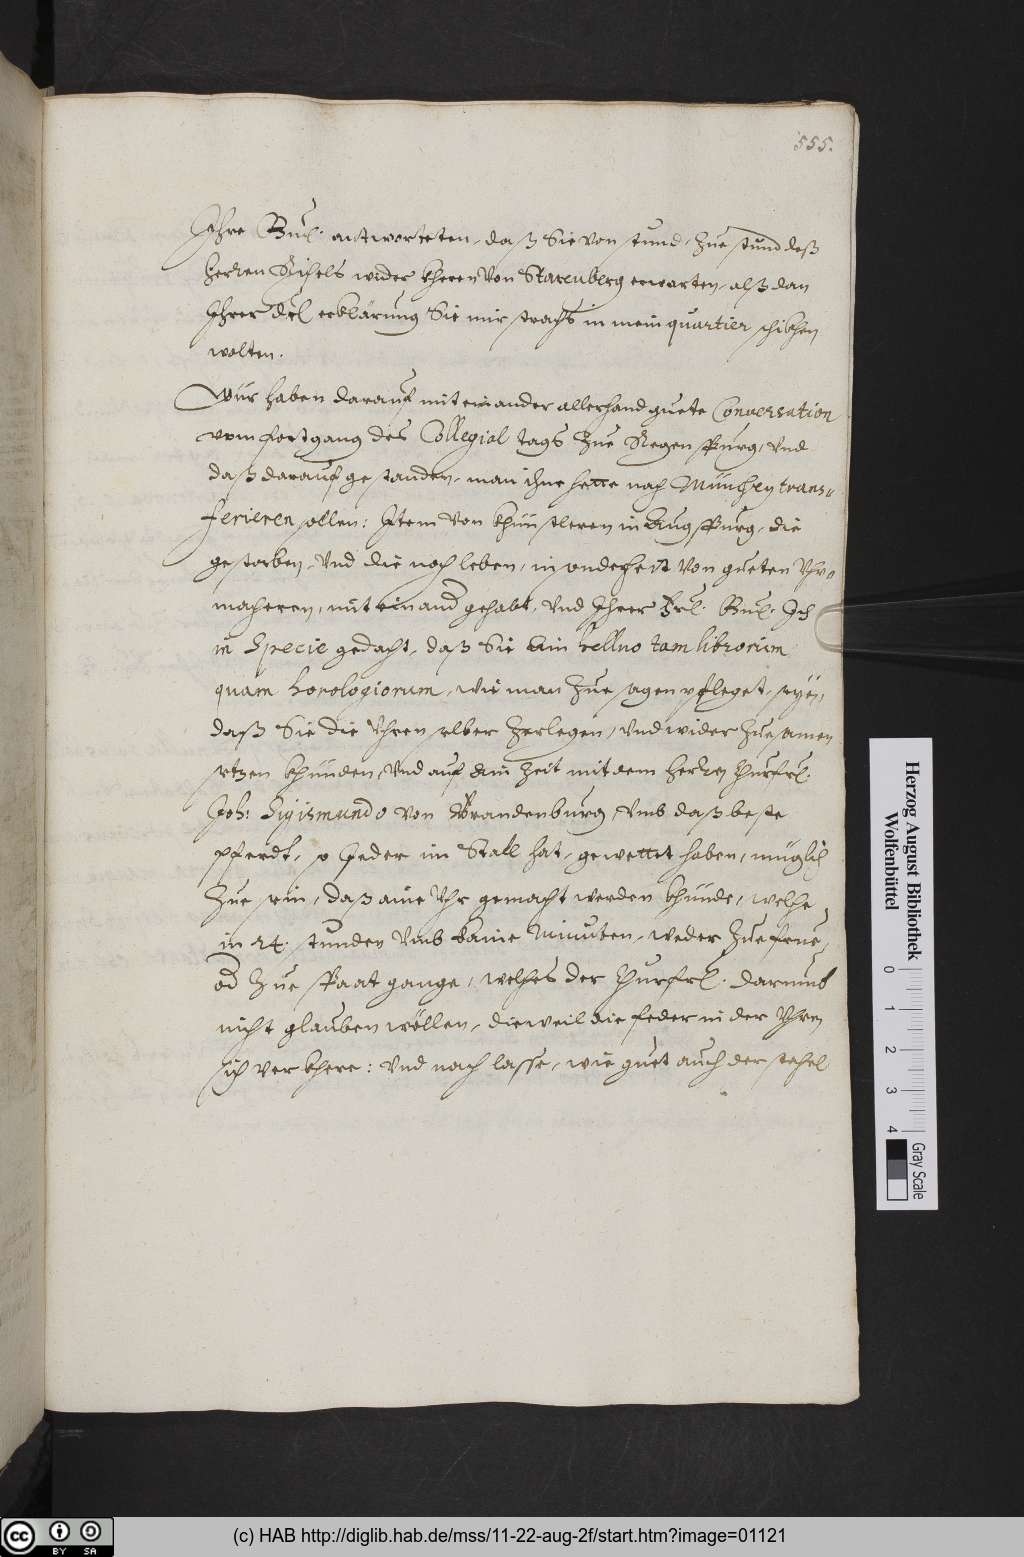 555.
Ihre Gnl. antworteten, daß Sie von stund, zue stund deß
herren Rihels wider kheren von Starenberg erwarten, alß dan
Ihrer dl erklärung Sie mir strachs in mein quartier schikhen
wolten.
Wür haben darauf mit einander allerhand guete Conversation
vom fortgang des Collegial tags zue Regenspurg, vnd
daß darauf gestanden, man ihne hette nach München trans=
ferieren sollen: Item von khünstleren in Augspurg, die
gestorben, vnd die noch leben, insonderheit von gueten Vhr=
macheren, mit einand gehabt, vnd Ihrer frl. Gnl. Ich
in Specie gedacht, daß Sie ain helluo tam librorum
quam horologiorum, wie man zue sagen pfleget, seyen,
daß Sie die Vhren selber zerlegen, vnd wider zuesamen
setzen khünden, vnd auf ain zeit mit dem herren Churfrl.
Joh: Sigismundo von Brandenburg, vmb daß beste
pferdt, so Jeder im Stall hat, gewettet haben, müglich
zue sein, daß aine Vhr gemacht werden khünde, welche
in 24. stunden vmb kaine Minuten, weder zue frue,
od zue spaat gange, welches der Churfrl. darumb
nicht glauben wöllen, dieweil die feder in der Vhren
sich verkhere: vnd nach lasse, wie guet auch der stahel
Herzog August Bibliothek
Wolfenbüttel
0 1 2 3 4
Gray Scale
cc BY SA
(c) HAB http://diglib.hab.de/mss/11-22-aug-2f/start.htm?image=01121